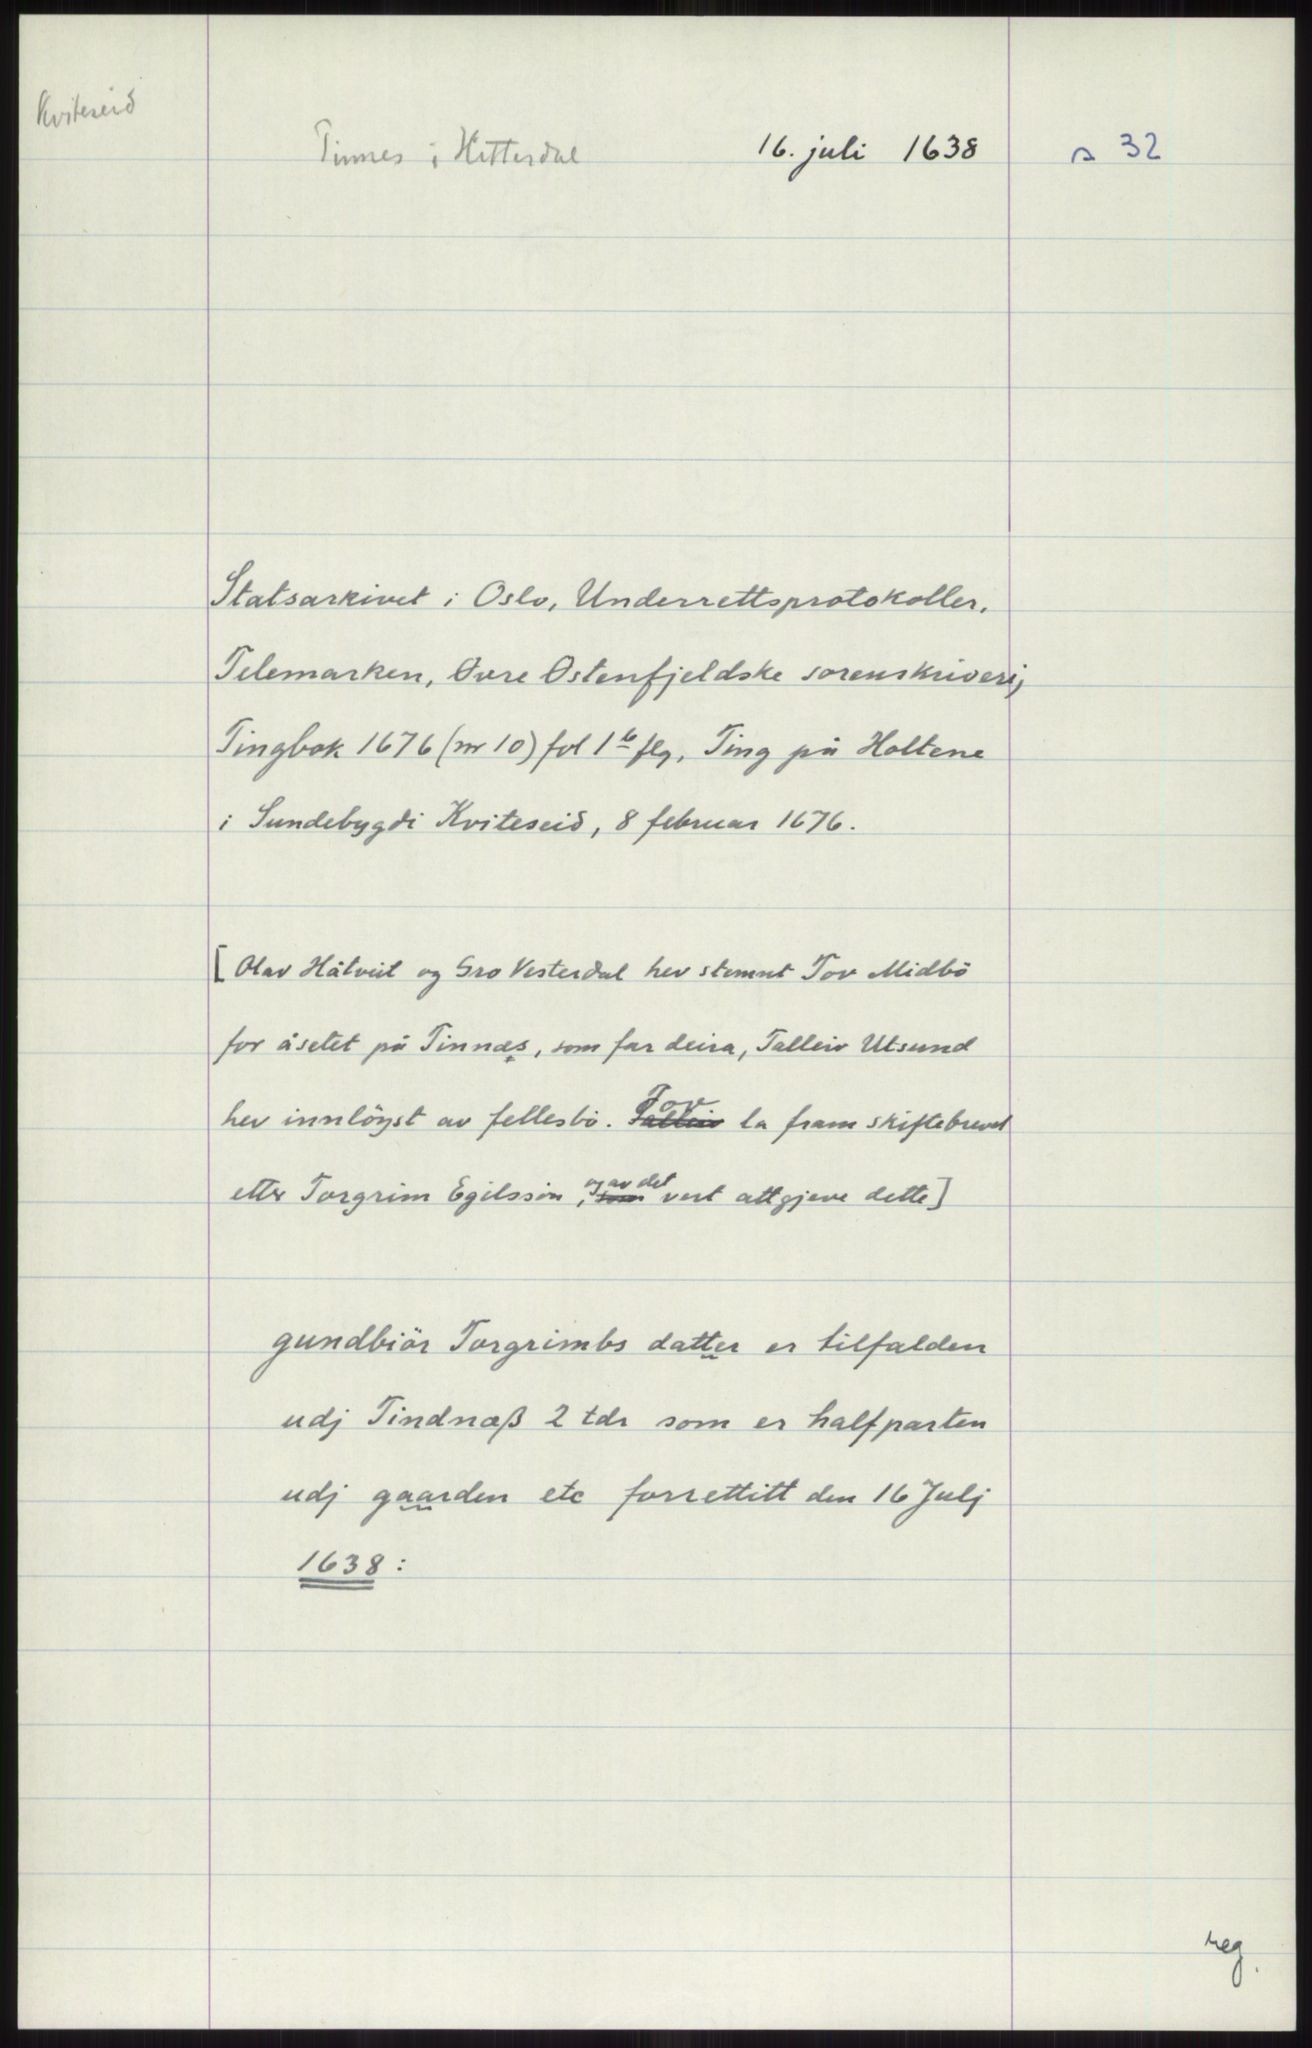 Kviteseid
Tinnes i Hitterdal 16. juli 1638 s 32
Statsarkivet i Oslo, Underrettsprotokoller,
Telemarken, Øvre Østenfjeldske sorenskriveri,
Tingbok 1676 (nr 10) fol 1b flg, Ting på Holtene
i Sundebygdi Kviteseid, 8 februar 1676.
[Olav Håtveit og Gro Vesterdal hev stemnt Tov Midbö
for åsetet på Tinnæs, som far deira, Talleiv Utsund
hev innlöyst av fellesbö. Talleiv Tov la fram skiftebrevet
etter Torgrim Egilssön, som og av det vert attgjeve dette]
gundbiör Torgrimbs datter er tilfalden
udj Tindnæß 2 tdr som er halfparten
udj gaarden etc forrettitt den 16 Julj
1638:
reg.